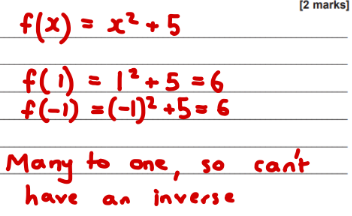 [2 marks]
f(x) = x² + 5
f(1) = 1² + 5 = 6
f(-1) = (-1)² + 5 = 6
Many to one, so can't
have an inverse